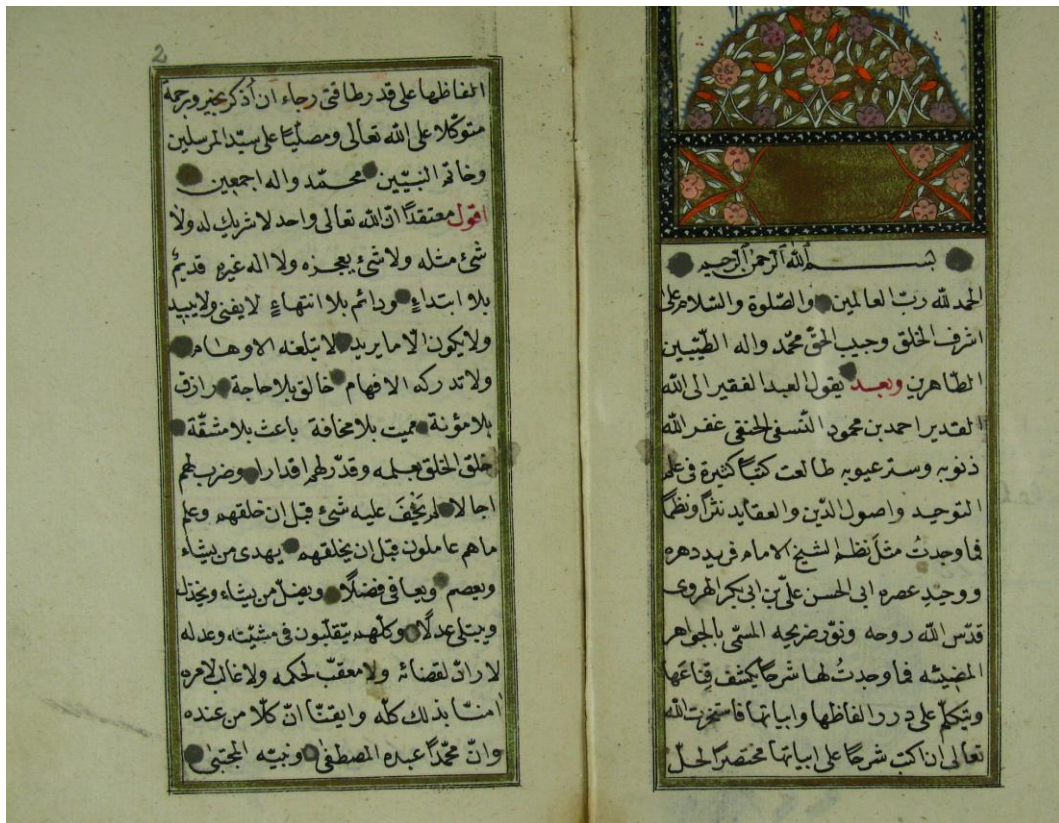 بسم الله الرحمن الرحيم
الحمد لله ربّ العالمين والصّلوة والسّلام على
اشرف الخلق وحبيب الحقّ محمّد واله الطّيّبين
الطّاهرين وبعد يقول العبد الفقير الى الله
القدير احمد بن محمود النّسفى الحنفى غفر الله
ذنوبه وستر عيوبه طالعت كتبًا كثيرة فى علم
التوحيد واصول الدّين والعقايد نثرًا ونظمًا
فما وجدتُ مثلَ نظم الشيخ الامام فريد دهره
ووحيدِ عصره ابى الحسن علىّ بن ابى بكر الهروى
قدّس الله روحه ونوّر ضريحه المسمّى بالجواهر
المضيئه فما وجدتُ لها شرحًا يكشف قِناعَها
ويتكلّم على درر الفاظها وابياتها فاستخرت الله
تعالى ان اكتب شرحًا على ابياتها مختصرًا لحلّ
2
الفاظها على قدر طاقتى رجاء ان أذكر بخير وبرحمة
متوكّلا على الله تعالى ومصلّيًا على سيّد المرسلين
وخاتم النبيّين محمّد واله اجمعين
اقول معتقدًا انّ الله تعالى واحد لا شريك له ولا
شئ مثله ولا شئ يعجزه ولا اله غيره قديمٌ
بلا ابتداءٍ ودائم بلا انتهاءٍ لا يفنى ولا يبيد
ولا يكون الّا ما يريد لا تبلغه الاوهام
ولا تدركه الافهام خالق بلا حاجة رازق
بلا مؤنة مميت بلا مخافة باعث بلا مشقّة
خلق الخلق بعلمه وقدّر لهم اقدارا وضرب لهم
اجالا لم يَخْفَ عليه شئ قبل ان خلقهم وعلم
ما هم عاملون قبل ان يخلقهم يهدى من يشاء
ويعصم ويعافى فضلًا ويضلّ من يشاء ويخذل
ويبتلى عدلًا وكلّهم يتقلّبون فى مشيّته وعدله
لا رادّ لقضائه ولا معقّب لحكمه ولا غالب لامره
امنّا بذلك كلّه وايقنّا انّ كلّا من عنده
وانّ محمّدًا عبده المصطفى ونبيّه المجتبى